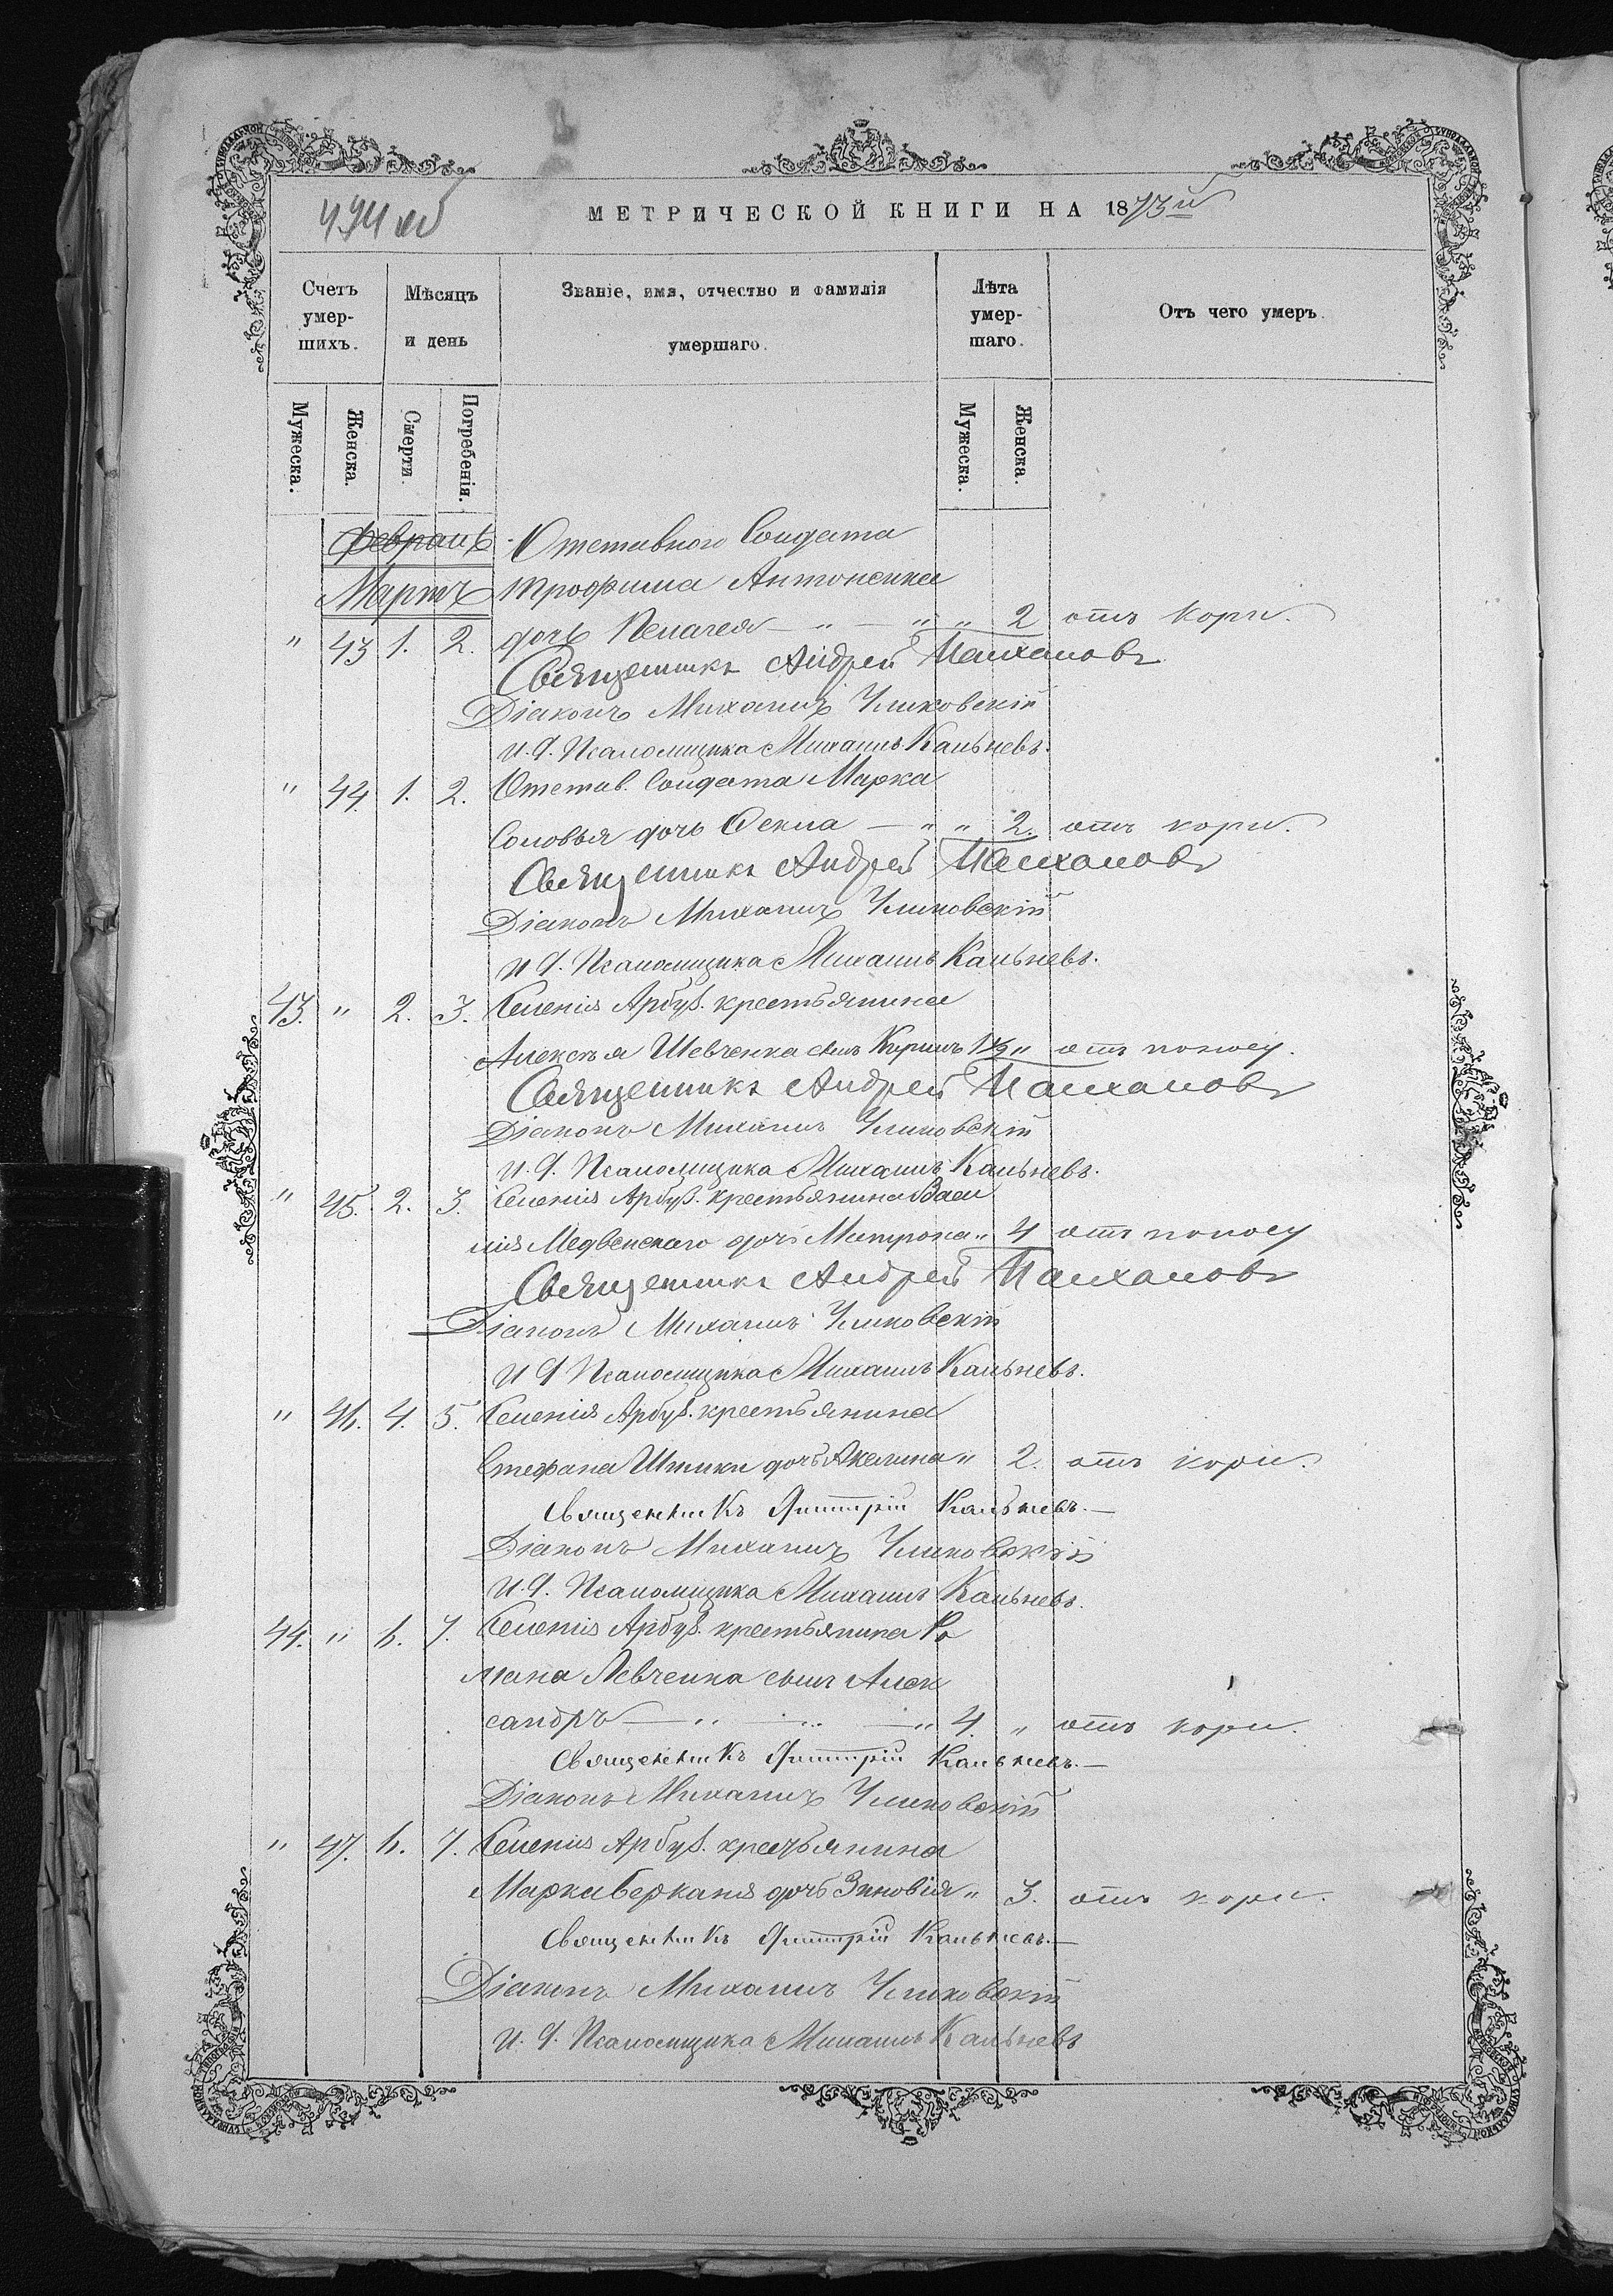 494 об
МЕТРИЧЕСКОЙ КНИГИ НА 1873й
Счетъ умер-шихъ.
Мѣсяцъ и день
Званіе, имя, отчество и фамилія умершаго.
Лѣта умер-шаго.
Отъ чего умеръ.
Мужеска.
Женска.
Смерти.
Погребенія.
Мужеска.
Женска.
Февраль Отставного Солдата
Мартъ Трофима Антоненка
" 43 1. 2. дочь Пелагея — " — " " 2 отъ кори.
Священникъ Андрей
Діаконъ Михаилъ
И. д. Псаломщика Михаилъ Кальневъ.
" 44. 1. 2. Отстав. Солдата Марка
Соловья дочь Фекла — " " 2. отъ кори.
Священникъ Андрей
Діаконъ Михаилъ
И д. Псаломщика Михаилъ Кальневъ.
43. " 2. 3. Селенія Арбуз. крестьянина
Алексѣя Шевченка сынъ Кирилъ 1½ " отъ поносу.
Священникъ Андрей
Діаконъ Михаилъ
И. д. Псаломщика Михаилъ Кальневъ.
" 45. 2. 3. Селенія Арбуз. крестьянина Васи
лія Медвенскаго дочь Митрона " 4 отъ поносу
Священникъ Андрей
Діаконъ Михаилъ
И д Псаломщика Михаилъ Кальневъ.
" 46. 4. 5. Селенія Арбуз. крестьянина
Стефана Штики дочь Акелина " 2. отъ кори.
Священникъ Димитрій Кальневъ.—
Діаконъ Михаилъ
И. д. Псаломщика Михаилъ Кальневъ.
44. " 6. 7. Селенія Арбуз. крестьянина Ро
мана Левченка сынъ Алек
сандръ — " — " — " 4. " отъ кори.
Священникъ Димитрій Кальневъ.—
Діаконъ Михаилъ
" 47. 6. 7. Селенія Арбуз. крестьянина
Марка Берканя дочь Зиновія " 3. отъ кори.
Священникъ Димитрій Кальневъ.—
Діаконъ Михаилъ
И. д. Псаломщика Михаилъ Кальневъ